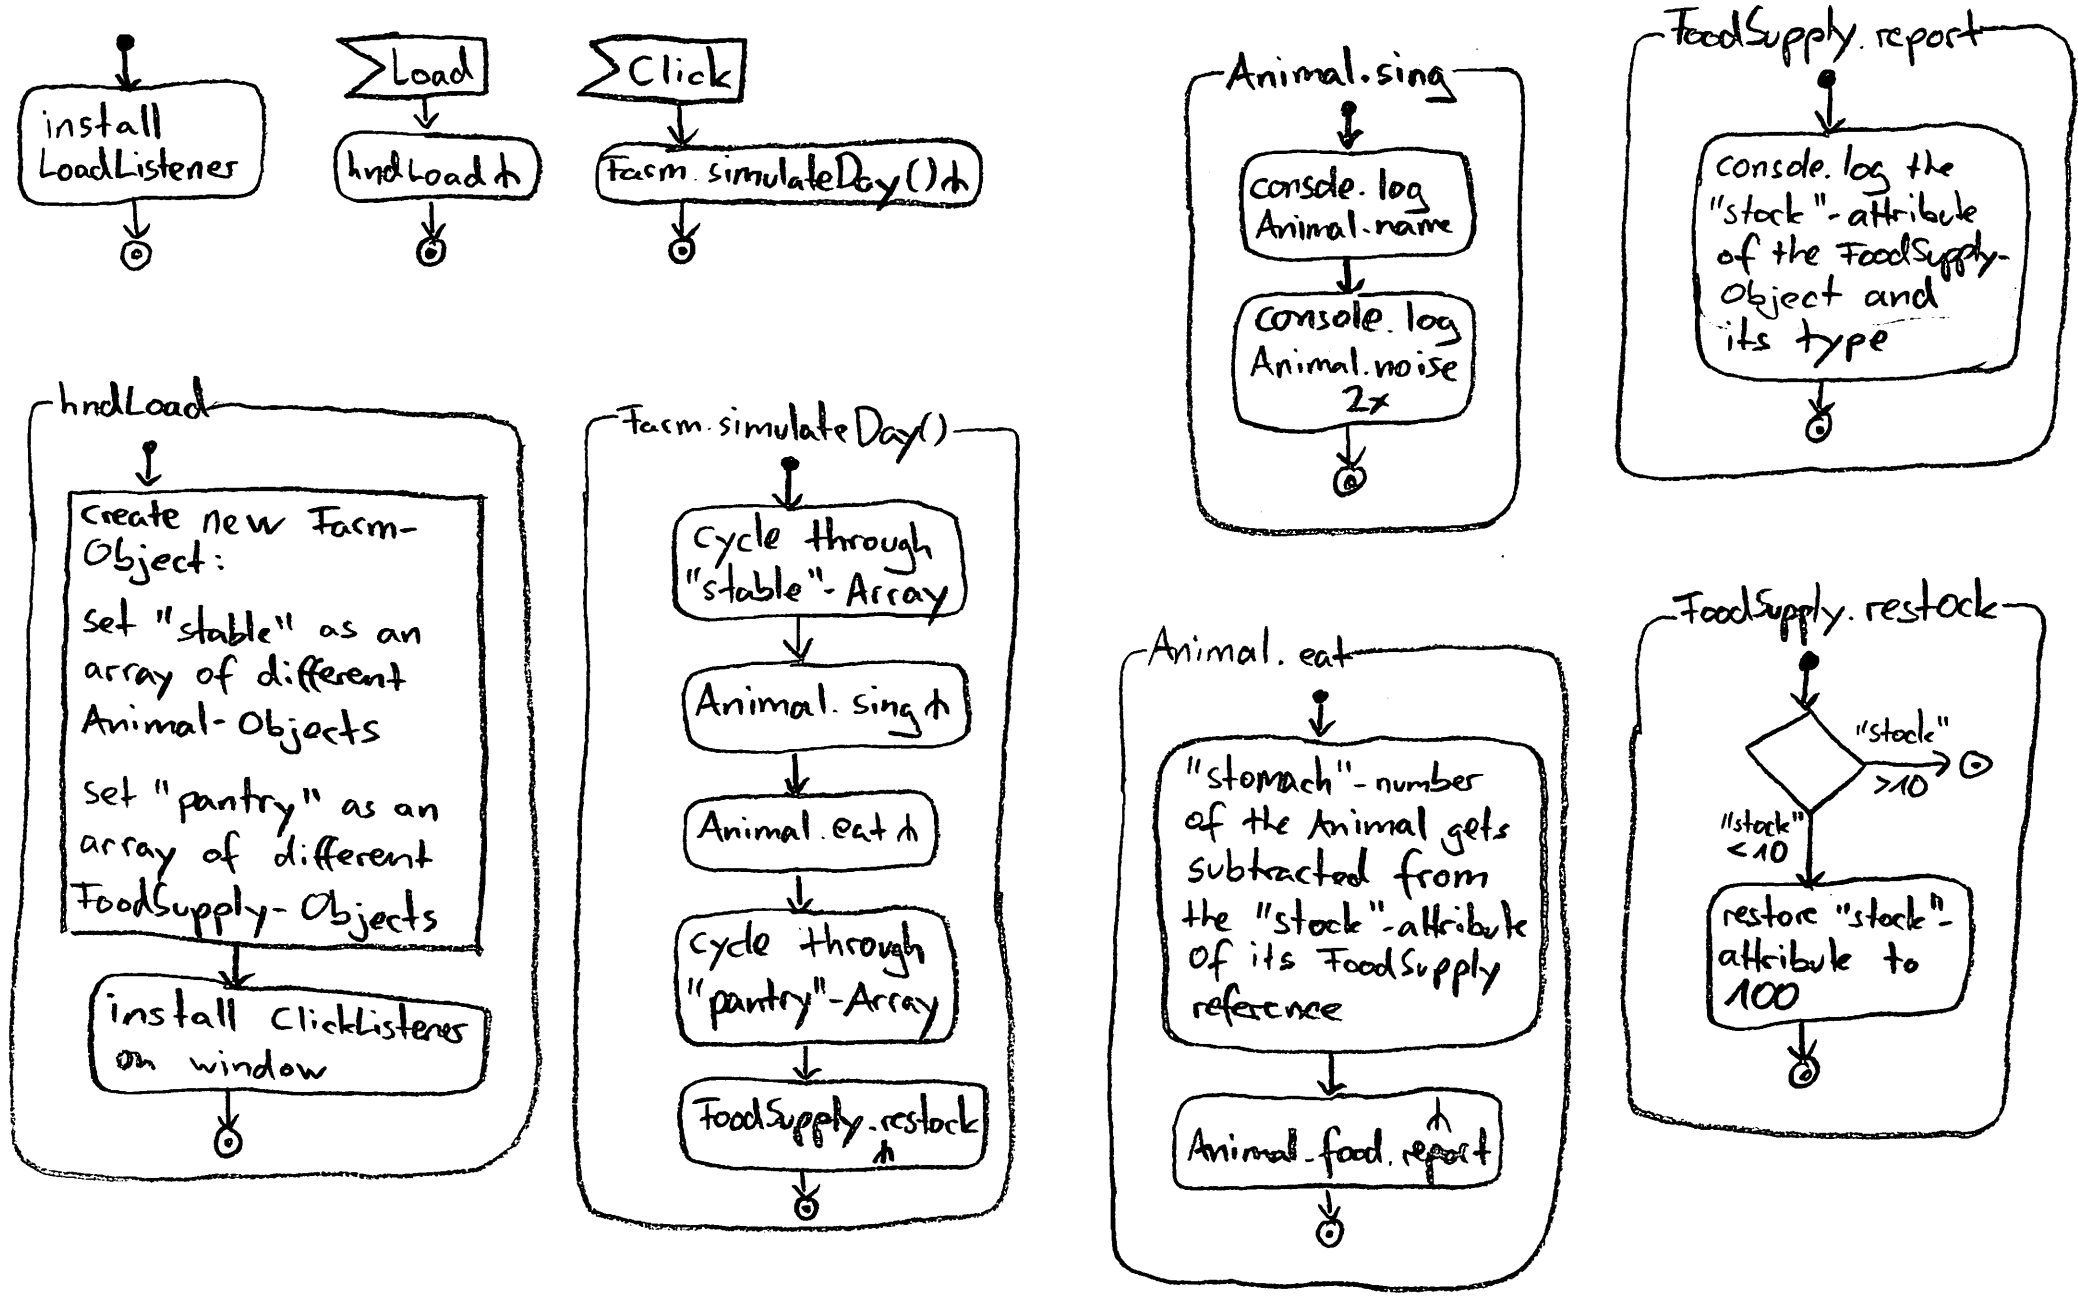 install
LoadListener
Load
hndLoad
Click
Farm.simulateDay()
hndLoad
create new Farm-
Object:
set "stable" as an
array of different
Animal-Objects
set "pantry" as an
array of different
FoodSupply-Objects
install ClickListener
on window
Farm.simulateDay()
cycle through
"stable"-Array
Animal.sing
Animal.eat
cycle through
"pantry"-Array
FoodSupply.restock
Animal.sing
console.log
Animal.name
console.log
Animal.noise
2x
Animal.eat
"stomach"-number
of the Animal gets
subtracted from
the "stock"-attribute
of its FoodSupply
reference
Animal.food.report
FoodSupply.report
console.log the
"stock"-attribute
of the FoodSupply-
Object and
its type
FoodSupply.restock
"stock"
>10
"stock"
<10
restore "stock"-
attribute to
100